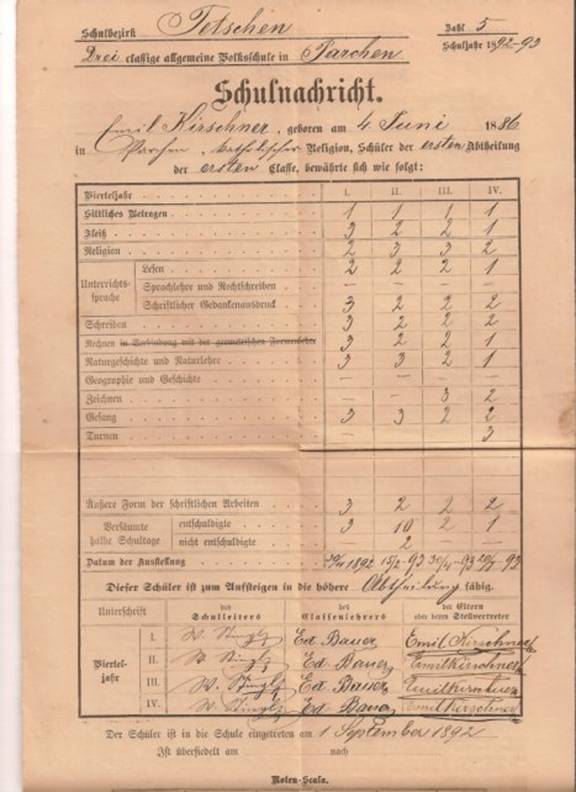 Schulbezirk Tetschen Zahl 5
Drei classige allgemeine Volksschule in Parchen Schuljahr 1892-93
Schulnachricht.
Emil Kirschner, geboren am 4. Juni 1886
in Parchen, katholischer Religion, Schüler der ersten Abtheilung
der ersten Classe, bewährte sich wie folgt:
Vierteljahr I. II. III. IV.
Sittliches Betragen 1 1 1 1
Fleiß 3 2 2 1
Religion 2 3 3 2
Unterrichtssprache Lesen 2 2 2 1
Sprachlehre und Rechtschreiben – – – –
Schriftlicher Gedankenausdruck 3 2 2 2
Schreiben 3 2 2 2
Rechnen in Verbindung mit der geometrischen Formenlehre 3 2 2 1
Naturgeschichte und Naturlehre 3 3 2 1
Geographie und Geschichte – – – –
Zeichnen – – 3 2
Gesang 3 3 2 2
Turnen – 3
Äußere Form der schriftlichen Arbeiten 3 2 2 2
Versäumte halbe Schultage entschuldigte 3 10 2 1
nicht entschuldigte – 2 – –
Datum der Ausstellung 1892 15/2-93 30/4-93 -93
Dieser Schüler ist zum Aufsteigen in die höhere Abtheilung fähig.
Unterschrift des Schulleiters des Classenlehrers der Eltern oder deren Stellvertreter
Vierteljahr I. Ed. Bauer Emil Kirschner
II. Ed. Bauer Emil Kirschner
III. Ed. Bauer Emil Kirschner
IV. Ed. Bauer Emil Kirschner
Der Schüler ist in die Schule eingetreten am 1 September 1892
Ist übersiedelt am nach
Noten-Scala.